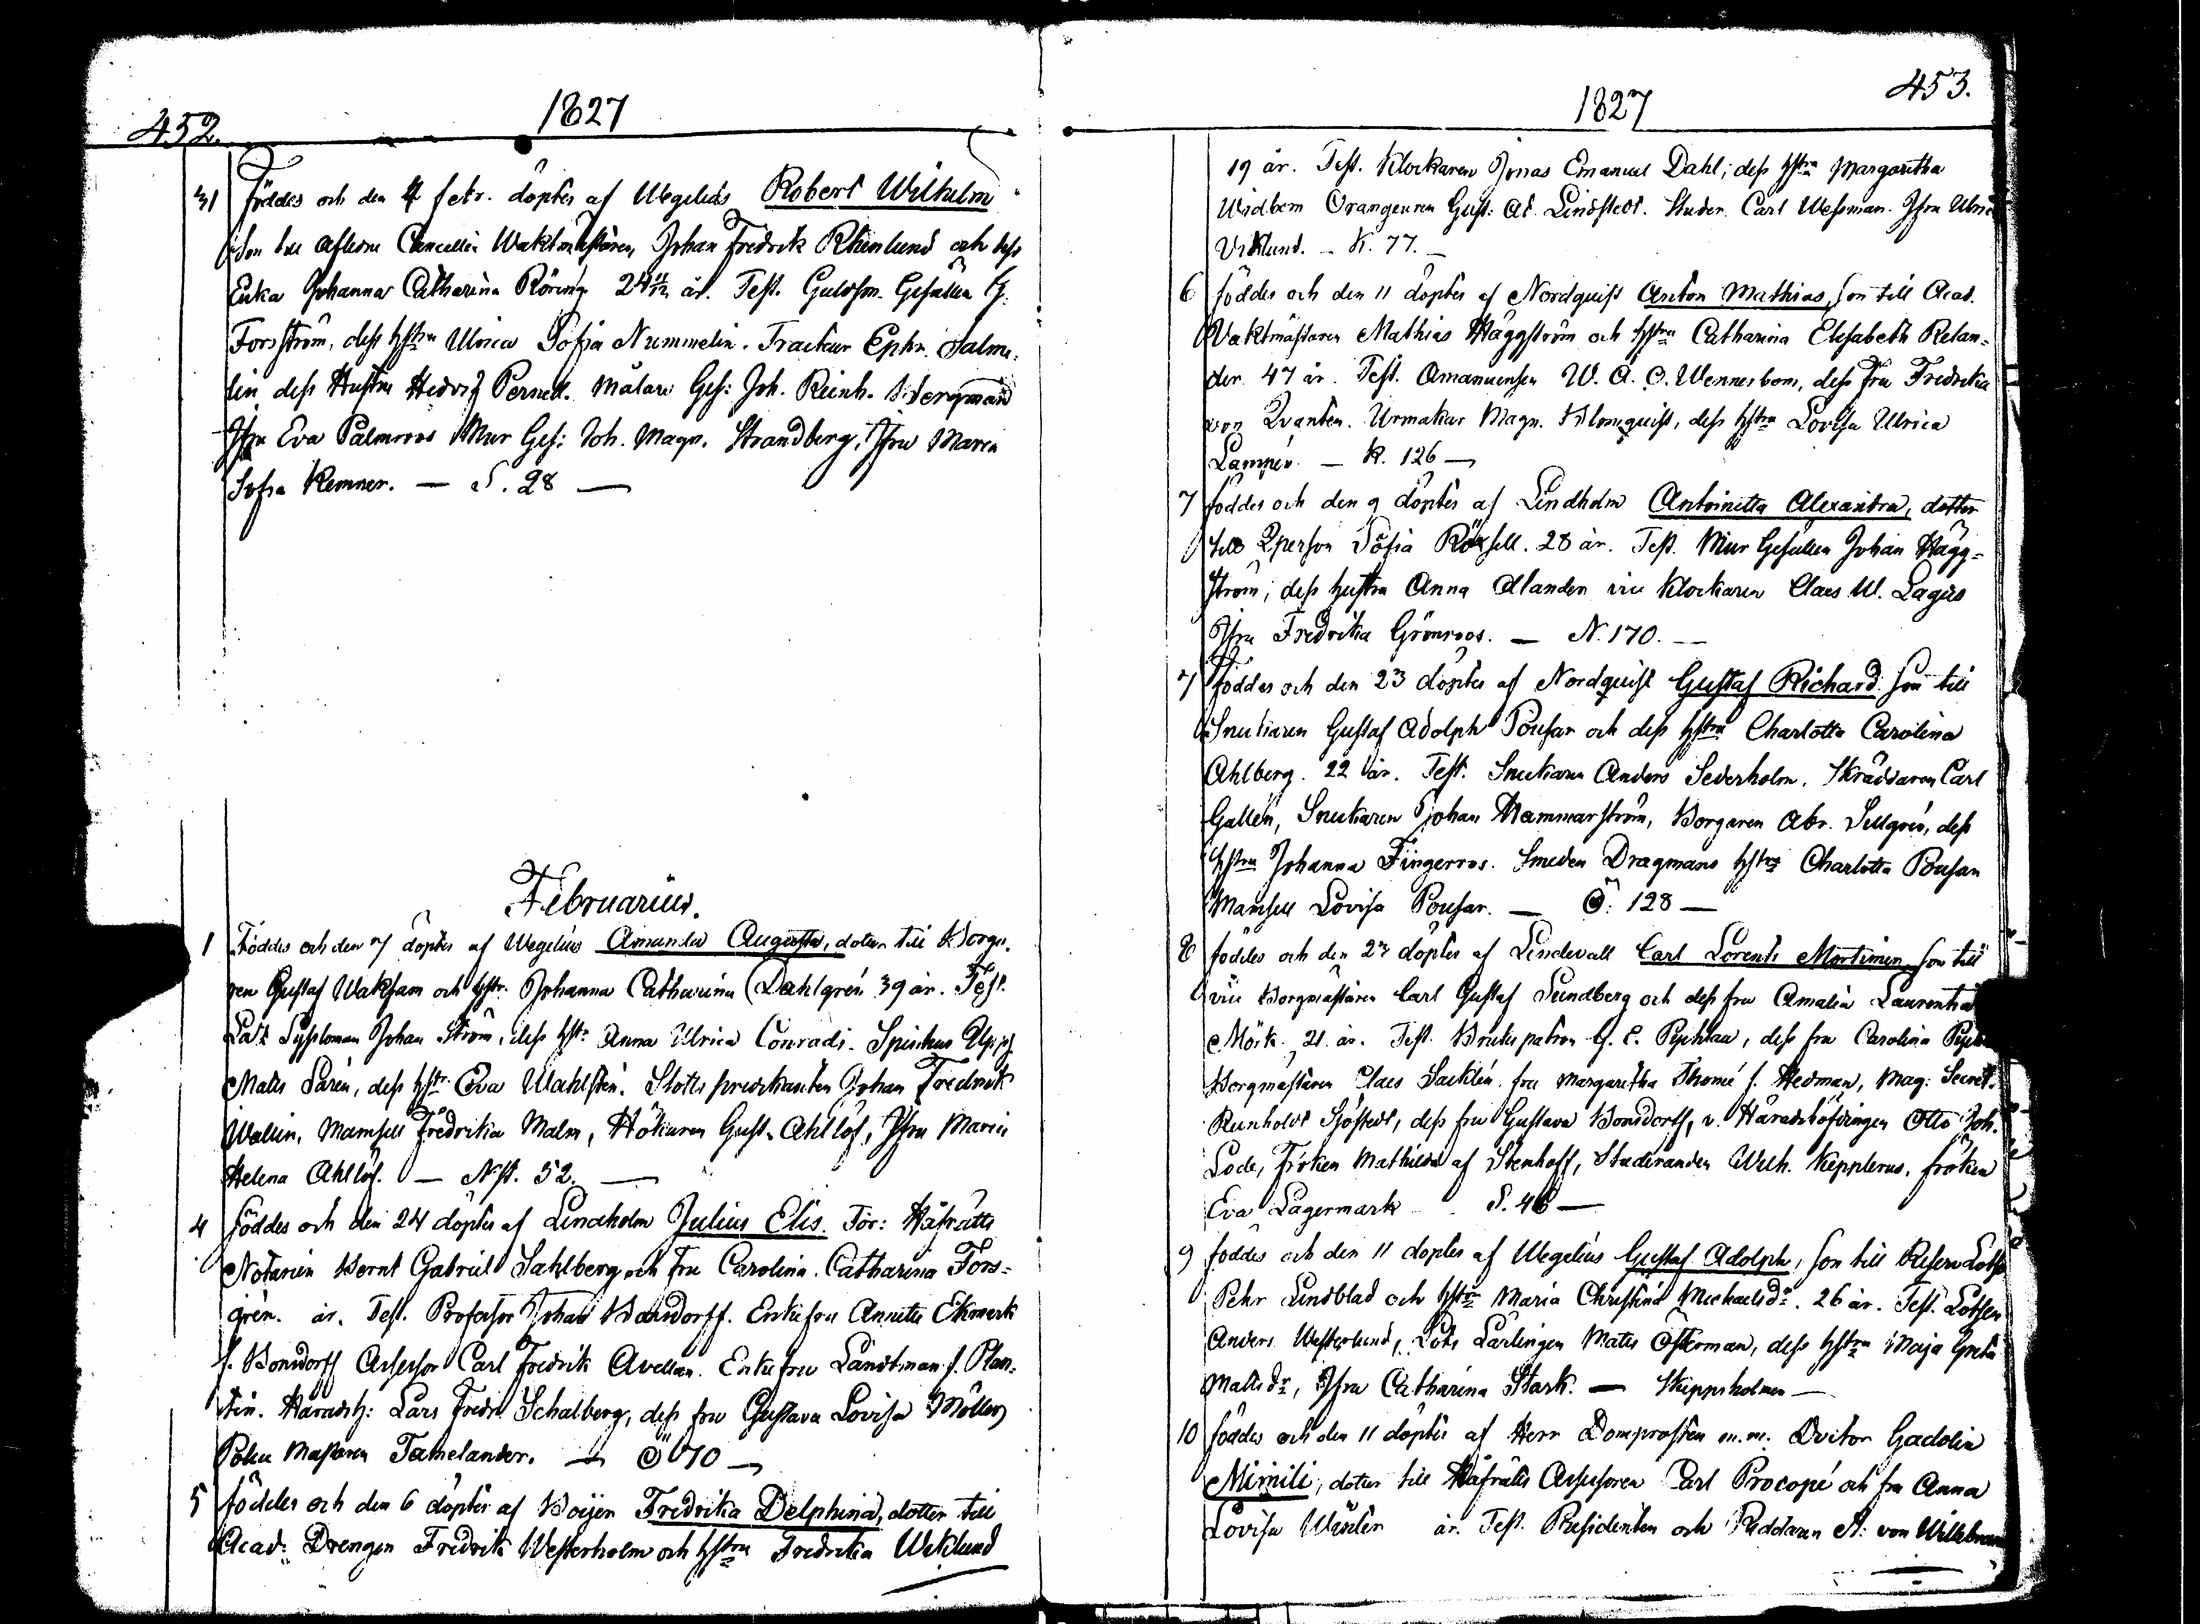 452.
1827
31 föddes och den 4 febr. döptes af Wegelius Robert Wilhelm
Son till aflidne Cancellie Waktmästaren Johan Fredrik Rhenlund och dess
Enka Johanna Catharina Röring 24 år. Test. Guldsm. Gesällen G.
Forsström, dess hstru Ulrica Sofia Nummelin. Tracteur Ephr. Salme-
lin dess Hustru Hedvig Pernell. Målare Ges: Joh. Reinh. Bergman
Jfru Eva Palmroos Mur Ges: Joh. Magn. Strandberg, Jfru Maria
Sofia Remner. — S. 28 —
Februarius.
1 Föddes och den 7 döptes af Wegelius Amanda Augusta, dotter till Borga-
ren Gustaf Waksam och hstr. Johanna Catharina Dahlgrén 39 år. Test.
Sysloman Johan Ström, dess hstr. Anna Ulrica Conradi. Spinhus
Matts Sarén, dess hstr. Eva Wahlstén. Slotts predikanten Johan Fredrik
Wallin, Mamsell Fredrika Malm, Hökaren Gust. Ahllöf, Jfru Maria
Helena Ahllöf. — N st. 52. —
4 föddes och den 24 döptes af Lindholm Julius Elis. För: Håfrätts
Notarien Bernt Gabriel Sahlberg och fru Carolina Catharina Fors-
grén. år. Test. Professor Johan Bonsdorff. Enkefru Annette Ekmark
f. Bonsdorff Assessor Carl Fredrik Avellan. Enkefru Landtman f. Plan-
tin. Häradsh: Lars Fredr. Schalberg, dess fru Gustava Lovisa Möller
Mastaren Tamelander. — Ö 70 —
5 föddes och den 6 döptes af Boijer Fredrika Delphina, dotter till
Acad: Drengen Fredrik Westerholm och hstru Fredrika Wiklund
453.
1827
19 år. Test. Klockaren Jonas Emanuel Dahl, dess hstru Margaretha
Widbom Orangeuren Gust: Ad. Lindstedt. Studer. Carl Wessman. Jfru Ulrica
Viklund. — K. 77. —
6 föddes och den 11 döptes af Nordquist Anton Mathias, son till Acad.
Vaktmästaren Mathias Häggström och hstru Catharina Elisabeth Relan-
der. 47 år. Test. Amanuensen W. A. O. Wennerbom, dess fru Fredrika
von Qvanten. Urmakar Magn. Blomquist, dess hstru Lovisa Ulrica
Lampén. — K. 126 —
7 föddes och den 9 döptes af Lindholm Antoinetta Alexandra, dotter
till Qperson Sofia Roxell. 28 år. Test. Mur Gesällen Johan Hägg-
ström, dess hustru Anna Alander vice Klockaren Claes W. Lagus
Jfru Fredrika Grönroos. — N. 170. —
7 Föddes och den 23 döptes af Nordquist Gustaf Richard Son till
Snickaren Gustaf Adolph Pousar och dess hstru Charlotta Carolina
Ahlberg. 22 år. Test. Snickaren Anders Sederholm. Skräddaren Carl
Gallén, Snickaren Johan Hammarström, Borgaren Abr. Sellgrén, dess
hstru Johanna Fingerroos. Smeden Dragmans hstru Charlotta Pousar
Mamsell Lovisa Pousar. — Ö. 128 —
8 föddes och den 23 döptes af Lindevall Carl Lorents Mortimer, son till
vice Borgmästaren Carl Gustaf Sundberg och dess fru Amalia Laurentia
Mörk. 21 år. Test. Brukspatron G. C. dess fru Carolina
Borgmästaren Claes Sacklén. fru Margaretha Thomé f. Hedman, Mag: Secret.
Runholdt Sjöstedt, dess fru Gustava Bonsdorff, v. Häradshöfdingen Otto Joh.
Lode, Fröken Mathilda af Stenhoff, Studeranden Wilh. Kepplerus, fröken
Eva Lagermark S. 46 —
9 föddes och den 11 döptes af Wegelius Gustaf Adolph, son till Reserv Lotsen
Pehr Lindblad och hstru Maria Christina Michaelsdr. 26 år. Test. Lotsen
Anders Westerlund, Lots Lärlingen Matts Österman, dess hstru Maja Greta
Mattsdr, Jfru Catharina Stark. — Skeppsholmen —
10 föddes och den 11 döptes af Herr Domprosten m.m. Doctor Gadolin
Mimili, dotter till Håfrätts Assessoren Carl Procopé och fru Anna
Lovisa Wäsélin år. Test. Presidenten och Riddaren A: von Willebrand